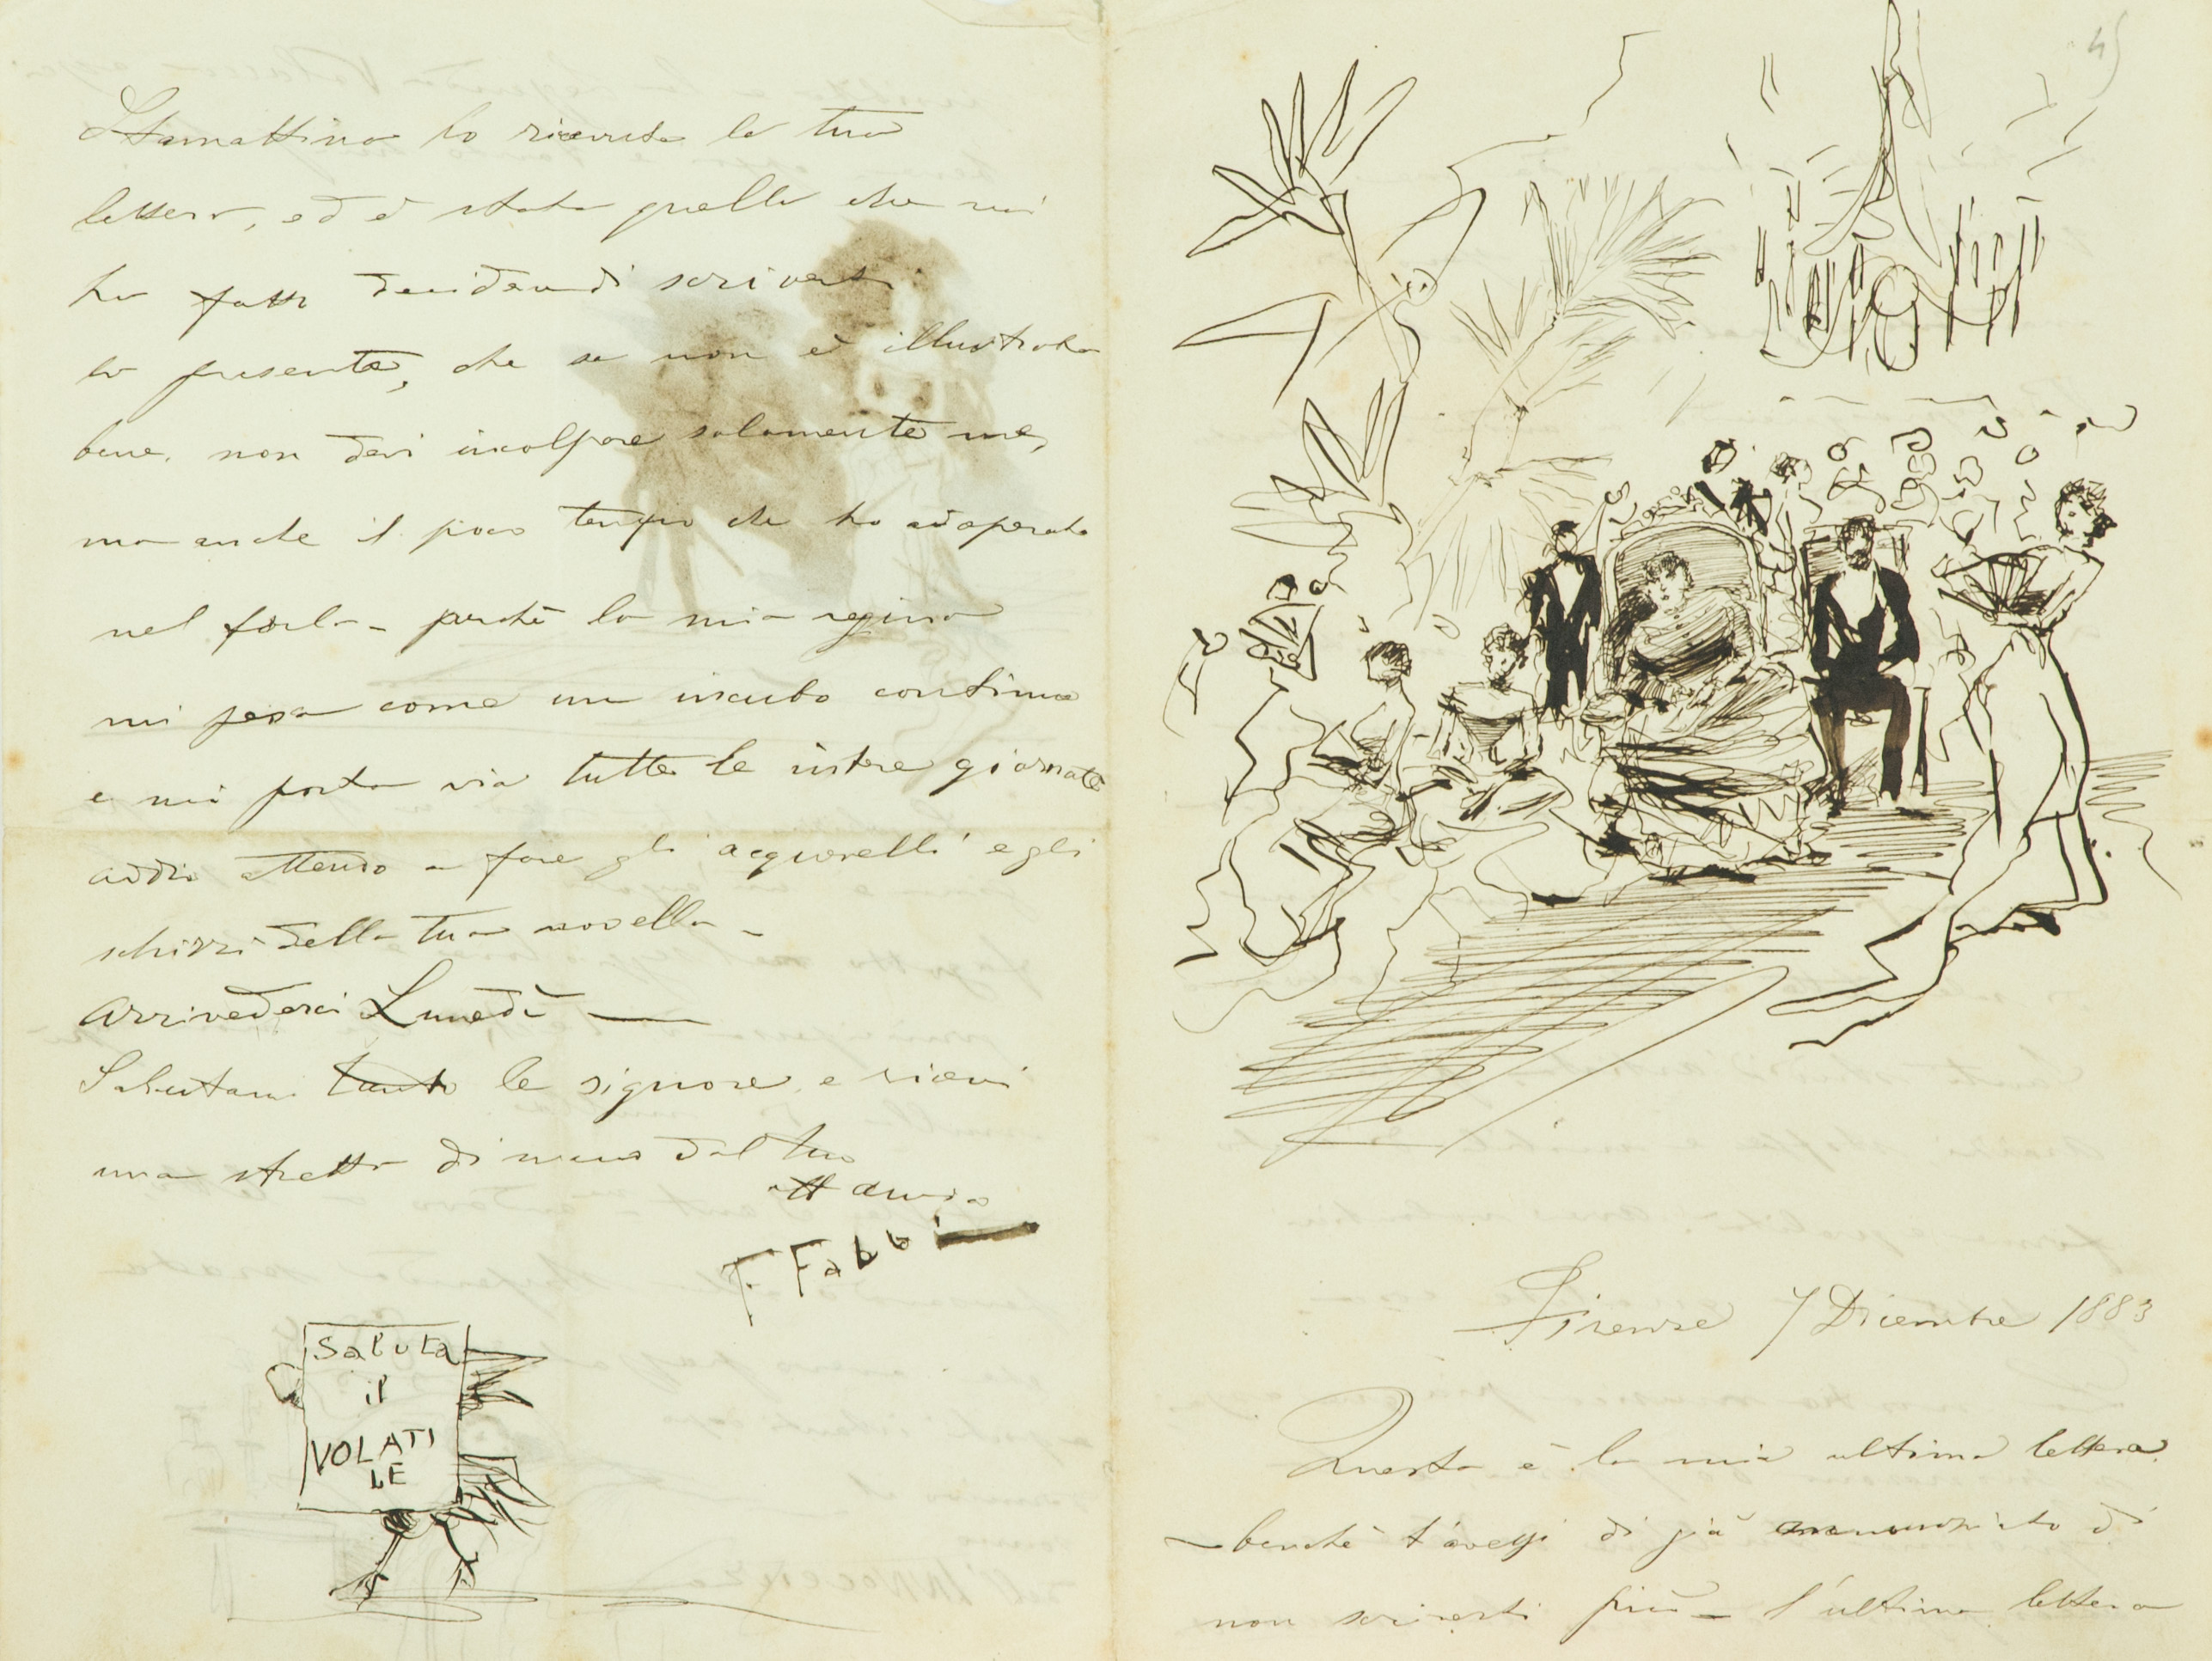 45
Firenze 7 Dicembre 1883
Questa è la mia ultima lettera
benchè t'avessi di già annunziato di
non scriverti più – l'ultima lettera
Stamattina ho ricevuto la tua
lettera, ed è stata quella che mi
ha fatto decidere di scriverti
la presente, che se non è illustrata
bene, non devi incolpare solamente me,
ma anche il poco tempo che ho adoperato
nel farla – perchè la mia regina
mi pesa come un incubo continuo
e mi porta via tutte le intere giornate
addio attendo a fare gli acquarelli e gli
schizzi della tua novella –
Arrivederci Lunedì —
Salutami tanto le signore e ricevi
una stretta di mano dal tuo
aff amico
F. Fabbi
Saluta
il
VOLATI
LE